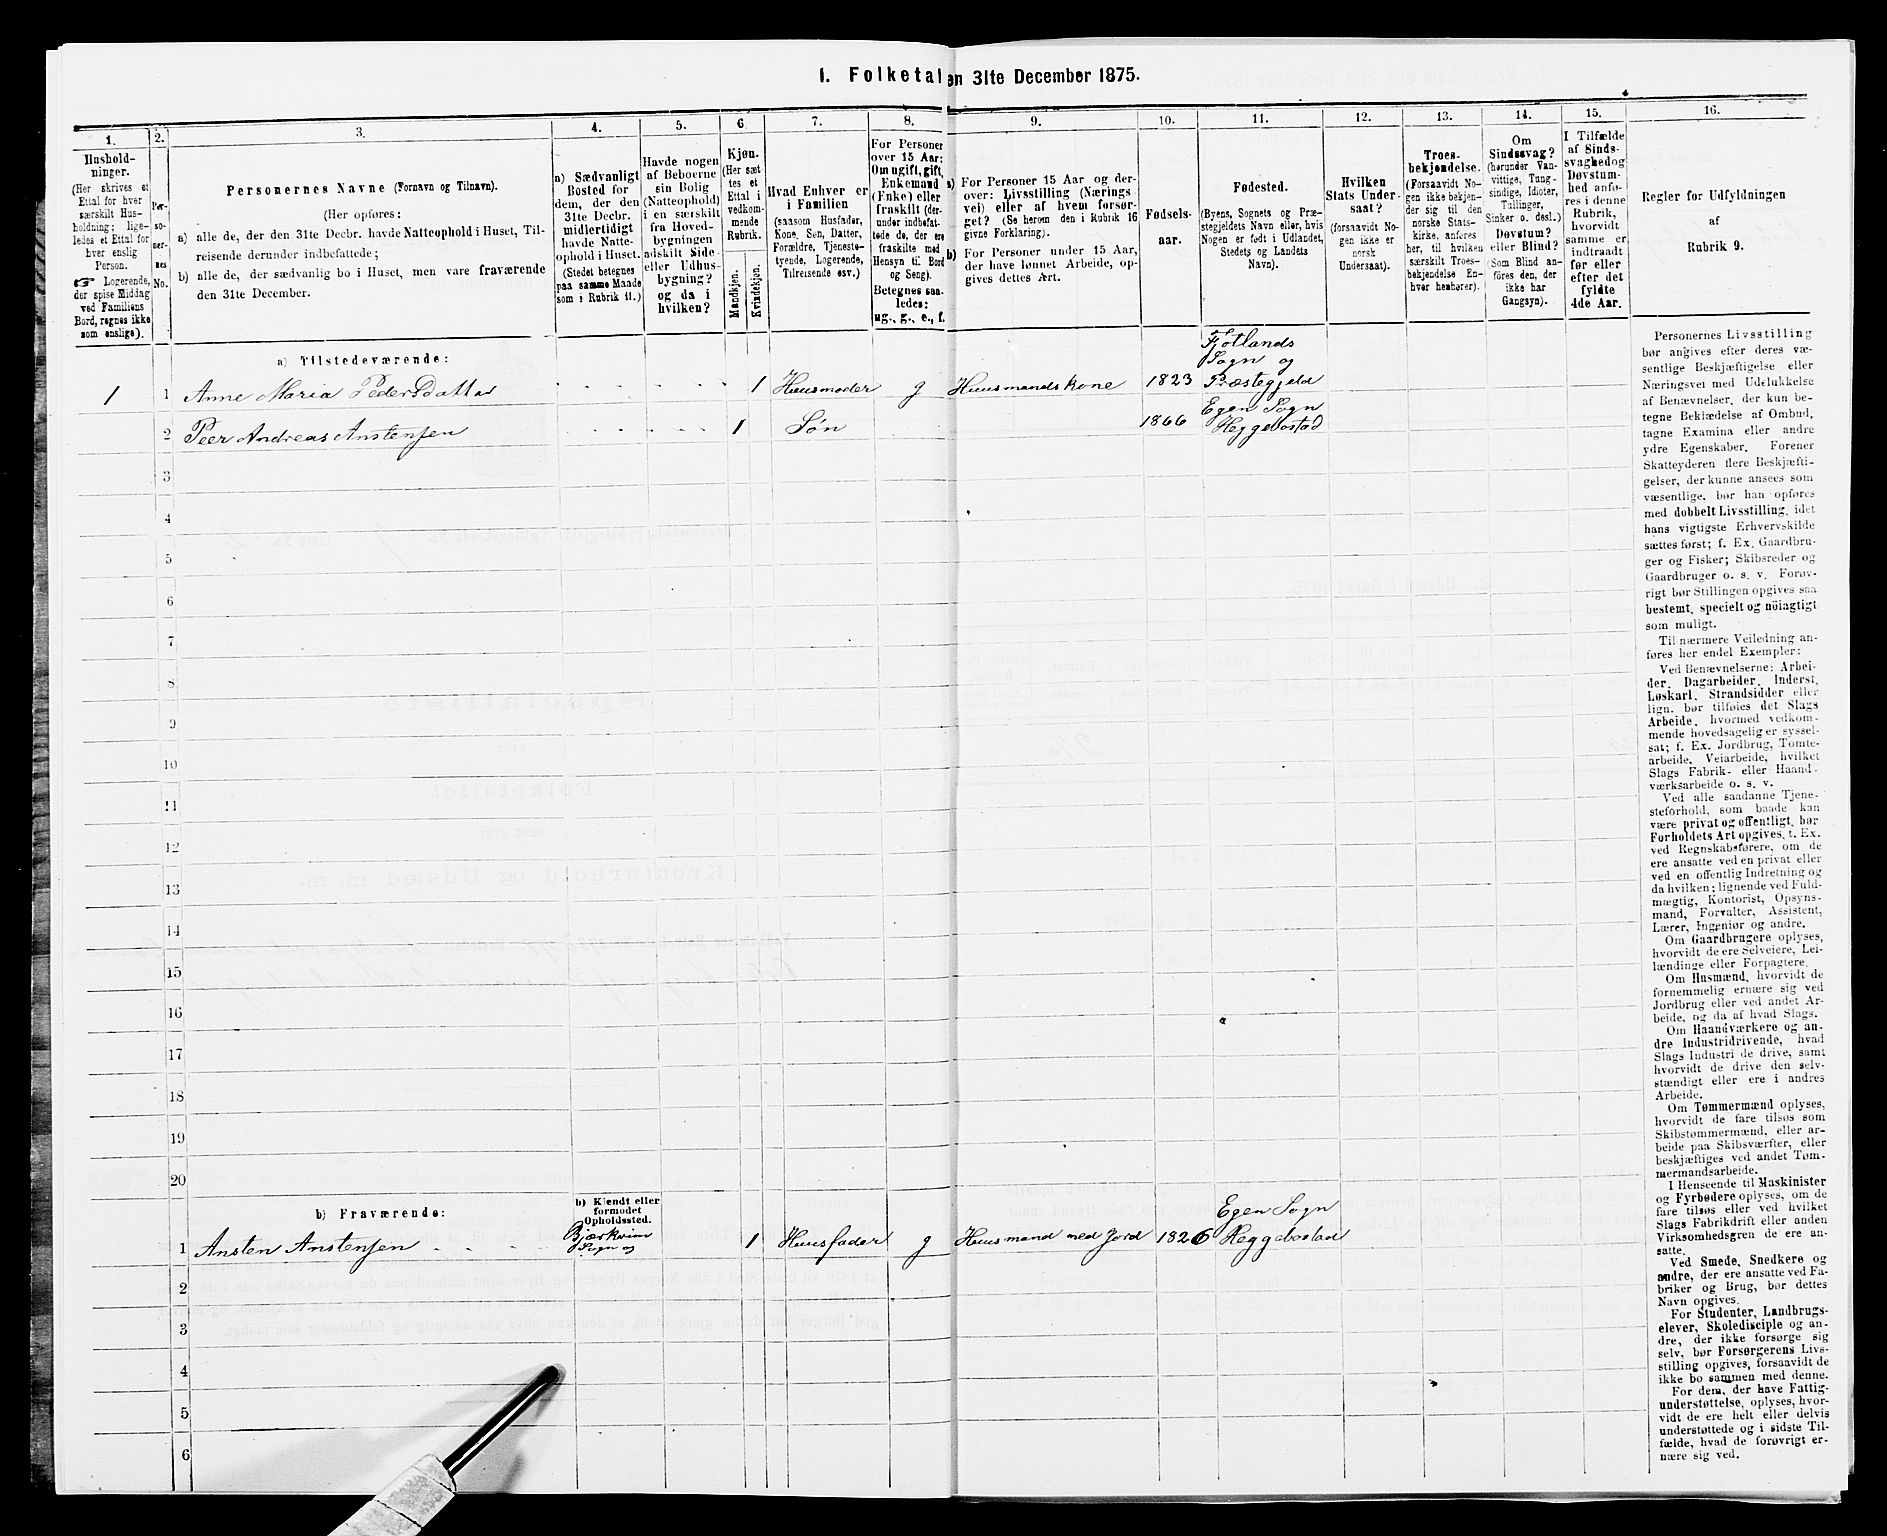 1. Folketal en 31te December 1875.
1.
2.
3.
4.
5.
6
7.
8.
9.
10.
11.
12.
13.
14.
15.
16.
Hushold-
ninger.
(Her skrives et
Ettal for hver
særskilt Hus-
holdning; lige-
ledes et Ettal for
hver enslig
Person.
☞ Logerende,
der spise Middag
ved Familiens
Bord, regnes ikke
som enslige).
Per-
so-
ner-
nes
No.
Personernes Navne (Fornavn og Tilnavn).
(Her opføres:
a) alle de, der den 31te Decbr. havde Natteophold i Huset, Til-
reisende derunder indbefattede;
b) alle de, der sædvanlig bo i Huset, men vare fraværende
den 31te December.
a) Sædvanligt
Bosted for
dem, der den
31te Decbr.
midlertidigt
havde Natte-
ophold i Huset.
(Stedet betegnes
paa samme Maade
som i Rubrik 11.)
Havde nogen
af Beboerne
sin Bolig
(Natteophold)
i en særskilt
fra Hoved-
bygningen
adskilt Side-
eller Udhus-
bygning?
og da i
hvilken?
Kjøn.
(Her sæt-
tes et
Ettal i
vedkom-
mende
Rubrik.
Mandkjøn.
Kvindekjøn.
Hvad Enhver er
i Familien
(saasom Husfader,
Kone, Søn, Datter,
Forældre, Tjeneste-
tyende, Logerende,
Tilreisende osv.)
For Personer
over 15 Aar:
Om ugift, gift,
Enkemand
(Enke) eller
fraskilt (der-
under indbefat-
tede de, der ere
fraskilte med
Hensyn til Bord
og Seng).
Betegnes saa-
ledes:
ug., g., e., f.
a) For Personer 15 Aar og der-
over: Livsstilling (Nærings
vei) eller af hvem forsør-
get? (Se herom den i Rubrik 16
givne Forklaring).
b) For Personer under 15 Aar,
der have lønnet Arbeide, op-
gives dettes Art.
Fødsels-
aar.
Fødested.
(Byens, Sognets og Præ-
stegjeldets Navn eller, hvis
Nogen er født i Udlandet,
Stedets og Landets
Navn).
Hvilken
Stats Under-
saat?
(forsaavidt No-
gen ikke er
norsk
Undersaat).
Troes-
bekjendelse.
(Forsaavidt No-
gen ikke bekjen-
der sig til den
norske Stats-
kirke, anføres
her, til hvilken
særskilt Troes-
bekjendelse En-
hver henhører).
Om
Sindssvag?
(herunder Van-
vittige, Tung-
sindige, Idioter,
Tullinger,
Sinker o. desl.)
Døvstum?
eller Blind?
(Som Blind an-
føres den, der
ikke har
Gangsyn).
I Tilfælde
af Sinds-
svaghed og
Døvstum-
hed anfø-
res i denne
Rubrik,
hvorvidt
samme er
indtraadt
før eller
efter det
fyldte
4de Aar.
Regler for Udfyldningen
af
Rubrik 9.
a) Tilstedeværende:
1 1 Anne Maria PedersDatter 1 Huusmoder g Huusmandskone 1823 Fjotlands
Sogn og
Præstegjeld
2 Peer Andreas Anstensen 1 Søn 1866 Egen Sogn
Heggebostad
3
4
5
6
7
8
9
10
11
12
13
14
15
16
17
18
19
20
b) Fraværende:
b) Kjendt eller
formodet
Opholdssted.
1 Ansten Anstensen Bjerkreim
Sogn og 1 Huusfader g Huusmand med Jord 1826 Egen Sogn
Heggebostad
2
3
4
5
6
Personernes Livsstilling
bør angives efter deres væ-
sentlige Beskjæftigelse eller
Næringsvei med Udelukkelse
af Benævnelser, der kun be-
tegne Beklædelse af Ombud,
tagne Examina eller andre
ydre Egenskaber. Forener
Skatteyderen flere Beskjæfti-
gelser, der kunne ansees som
væsentlige, bør han opføres
med dobbelt Livsstilling, idet
hans vigtigste Erhvervskilde
sættes først; f. Ex. Gaardbru-
ger og Fisker; Skibsreder og
Gaardbruger o. s. v. Forøv-
rigt bør Stillingen opgives saa
bestemt, specielt og nøiagtigt
som muligt.
Til nærmere Veiledning an-
føres her endel Exempler:
Ved Benævnelserne: Arbei-
der, Dagarbeider, Inderst,
Løskarl, Strandsidder eller
lign. bør tilføies det Slags
Arbeide, hvormed vedkom-
mende hovedsagelig er syssel-
sat; f. Ex. Jordbrug, Tomte-
arbeide, Veiarbeide, hvilket
Slags Fabrik- eller Haand-
værksarbeide o. s. v.
Ved alle saadanne Tjene-
steforhold, som baade kan
være privat og offentligt, bør
Forholdets Art opgives, t. Ex.
ved Regnskabsførere, om de
ere ansatte ved en privat eller
ved en offentlig Indretning og
da hvilken; lignende ved Fuld-
mægtig, Kontorist, Opsyns-
mand, Forvalter, Assistent,
Lærer, Ingeniør og andre.
Om Gaardbrugere oplyses,
hvorvidt de ere Selveiere, Lei-
lændinge eller Forpagtere.
Om Husmænd, hvorvidt de
fornemmelig ernære sig ved
Jordbrug eller ved andet Ar-
beide, og da af hvad Slags.
Om Haandværkere og an-
dre Industridrivende, hvad
Slags Industri de drive, samt
hvorvidt de drive den selv-
stændigt eller ere i andres
Arbeide.
Om Tømmermænd oplyses,
hvorvidt de fare tilsøs som
Skibstømmermænd, eller ar-
beide paa Skibsværfter, eller
beskjæftiges ved andet Tøm-
mermandsarbeide.
I Henseende til Maskinister
og Fyrbødere oplyses, om de
fare tilsøs eller ved hvilket
Slags Fabrikdrift eller anden
Virksomhedsgren de ere an-
satte.
Ved Smede, Snedkere og
andre, der ere ansatte ved Fa-
briker og Brug, bør dettes
Navn opgives.
For Studenter, Landbrugs-
elever, Skoledisciple og an-
dre, der ikke forsørge sig
selv, bør Forsørgerens Livs-
stilling opgives, forsaavidt de
ikke bo sammen med denne.
For dem, der have Fattig-
understøttelse, oplyses, hvor-
vidt de ere helt eller delvis
understøttede og i sidste Til-
fælde, hvad de forøvrigt er-
nære sig ved.